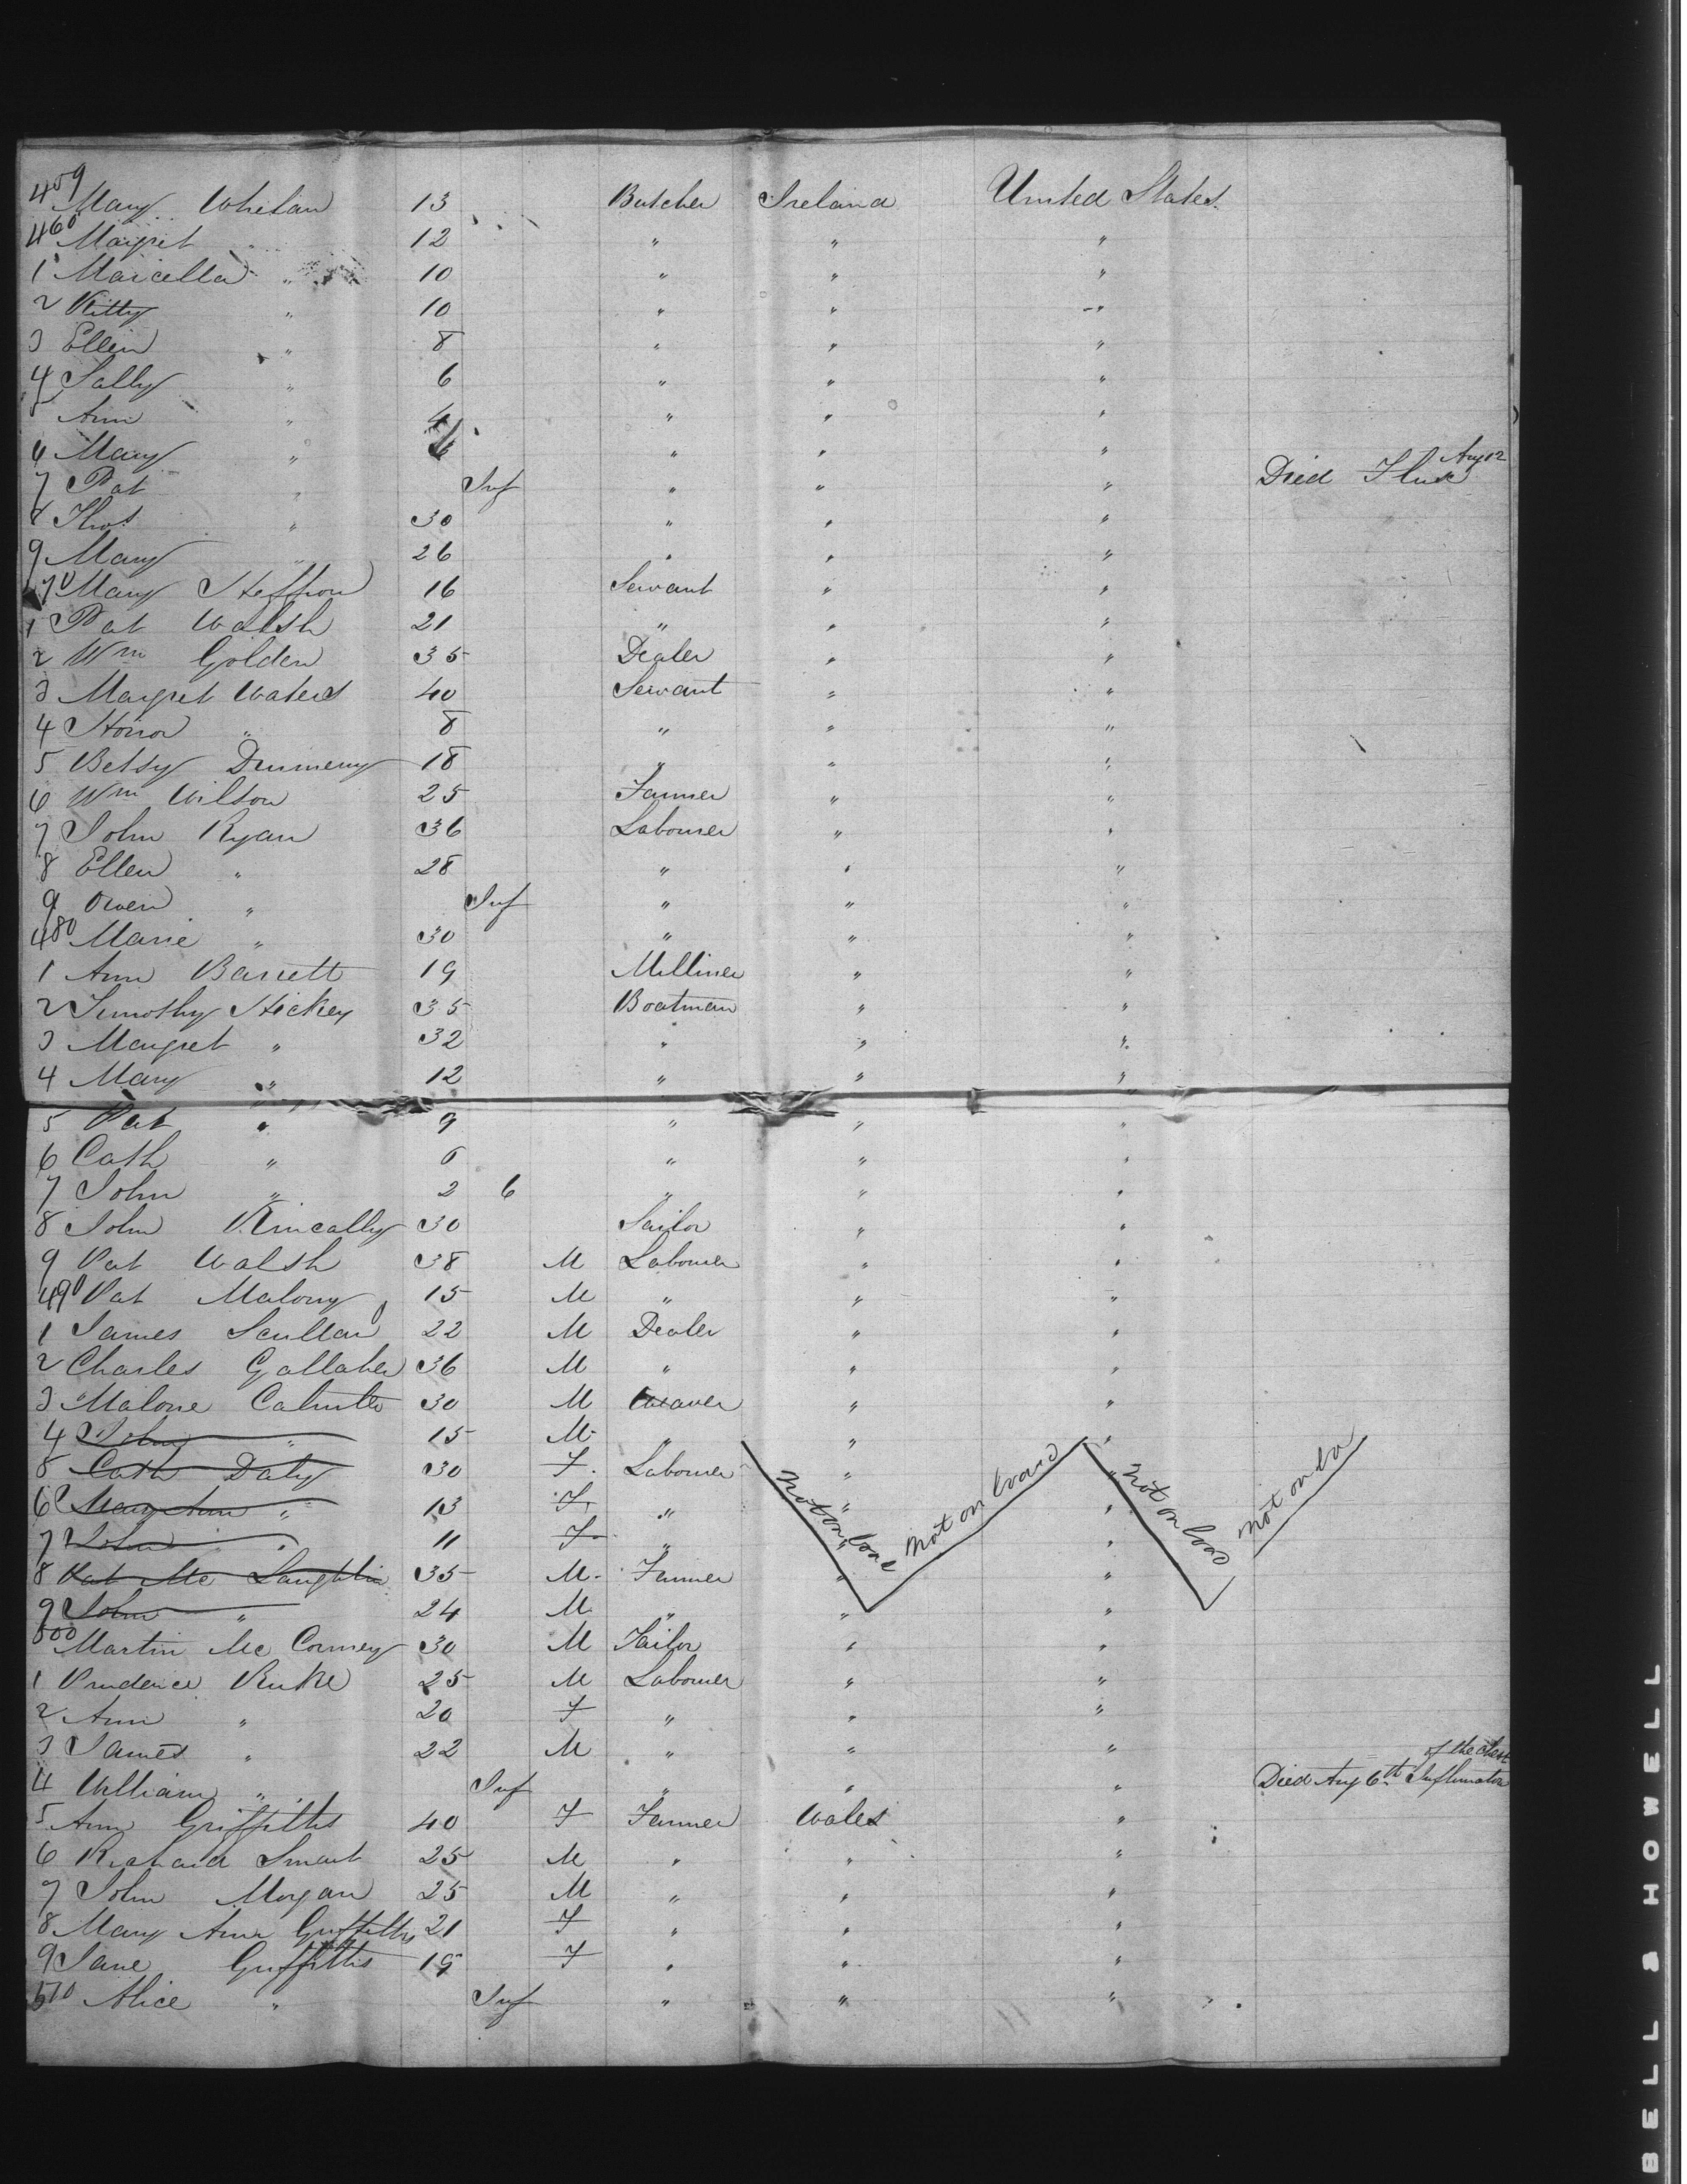 459 Mary Whelan 13 Butcher Ireland United States
460 Margret " 12 " " "
1 Marcella " 10 " " "
2 Kitty " 10 " " "
3 Ellen " 8 " " "
4 Sally " 6 " " "
5 Ann " 4 " " "
6 Mary " " " "
7 Pat " Inf " " " Died Flux Aug 12
8 Thos " 30 " " "
9 Mary " 26 " " "
470 Mary Heffron 16 Servant " "
1 Pat Walsh 21 " " "
2 Wm Golden 35 Dealer " "
3 Margret Waters 40 Servant " "
4 Honor " 8 " " "
5 Betsy 18 " " "
6 Wm Wilson 25 Farmer " "
7 John Ryan 36 Labourer " "
8 Ellen " 28 " " "
9 Owen " Inf " " "
480 Marie " 30 " " "
1 Ann Barrett 19 Milliner " "
2 Timothy Hickey 35 Boatman " "
3 Margret " 32 " " "
4 Mary " 12 " " "
5 Pat " 9 " " "
6 Cath " 6 " " "
7 John " 2 6 " " "
8 John Kincally 30 Tailor " "
9 Pat Walsh 38 M Labourer " "
490 Pat Malony 15 M " " "
1 James Scullan 22 M Dealer " "
2 Charles Gallaher 36 M " " "
3 Malone 30 M Weaver " "
4 John " 15 M " " "
5 Cath Daly 30 F Labourer " "
6 Mary Ann " 13 F " " "
7 John " 11 F " " "
Not on board Not on board Not on board Not on bo
8 Pat Mc Laughlin 35 M Farmer " "
9 John " 24 M " " "
500 Martin Mc Conney 30 M Tailor " "
1 Prudence Burke 25 M Labourer " "
2 Ann " 20 F " " "
3 James " 22 M " " "
4 William " Inf " " " Died Aug 6th Inflimation of the Chest
5 Ann Griffiths 40 F Farmer Wales "
6 Richard Smart 25 M " " "
7 John Morgan 25 M " " "
8 Mary Ann Griffiths 21 F " " "
9 Jane Griffiths 19 F " " "
510 Alice " Inf " " "
BELL & HOWELL